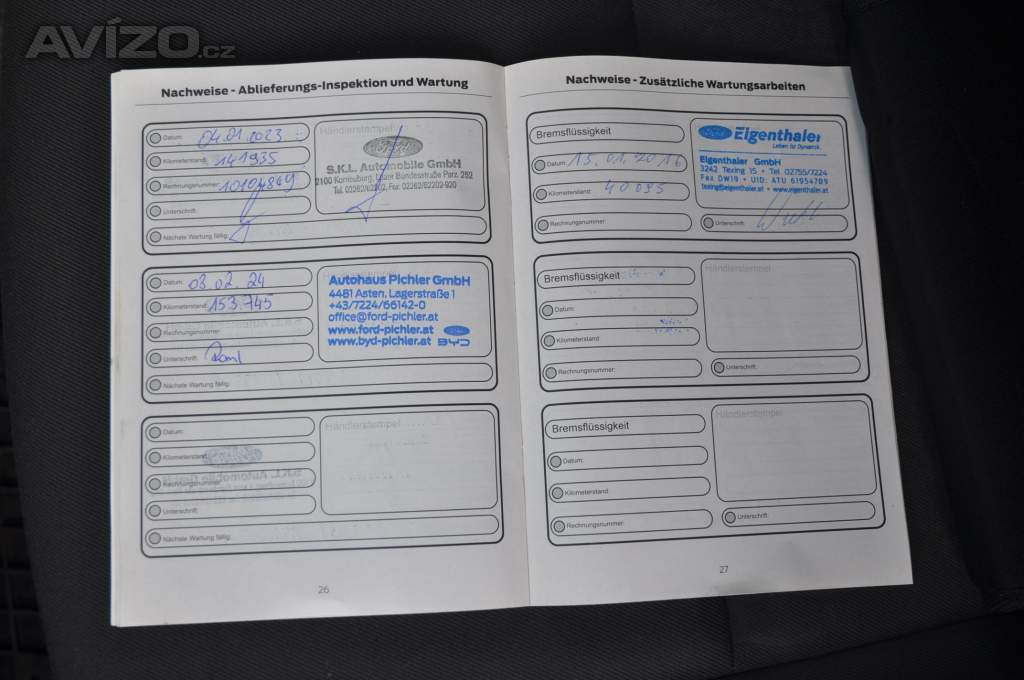 AVÍZO.cz
Nachweise - Ablieferungs-Inspektion und Wartung
Datum: 04.01.2023
Kilometerstand: 141935
Rechnungsnummer: 10104849
Unterschrift:
Nächste Wartung fällig:
Händlerstempel
Ford
S.K.L. Automobile GmbH
2100 Korneuburg, Wiener Bundesstraße Parz. 282
Tel. 02262/62202, Fax: 02262/62202-920
Datum: 03.02.24
Kilometerstand: 153.745
Rechnungsnummer:
Unterschrift:
Nächste Wartung fällig:
Autohaus Pichler GmbH
4481 Asten, Lagerstraße 1
+43/7224/66142-0
office@ford-pichler.at
www.ford-pichler.at
www.byd-pichler.at BYD
Datum:
Kilometerstand:
Rechnungsnummer:
Unterschrift:
Nächste Wartung fällig:
Händlerstempel
26
Nachweise - Zusätzliche Wartungsarbeiten
Bremsflüssigkeit
Datum: 13.01.2016
Kilometerstand: 40095
Rechnungsnummer:
Eigenthaler
Leben für Dynamik.
Eigenthaler GmbH
3242 Texing 15 • Tel 02755/7224
Fax DW19 • UID: ATU 61954709
texing@eigenthaler.at • www.eigenthaler.at
Unterschrift:
Bremsflüssigkeit
Datum:
Kilometerstand:
Rechnungsnummer:
Händlerstempel
Unterschrift:
Bremsflüssigkeit
Datum:
Kilometerstand:
Rechnungsnummer:
Händlerstempel
Unterschrift:
27